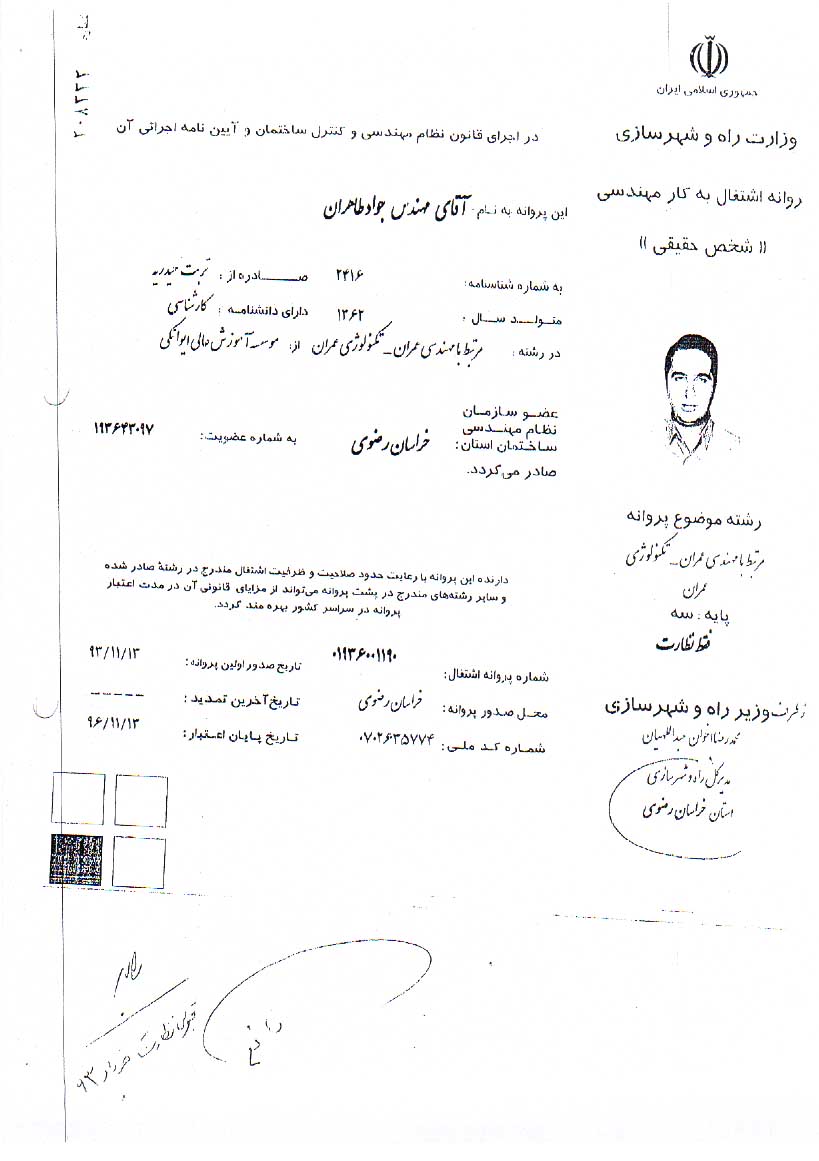 جمهوری اسلامی ایران
وزارت راه و شهرسازی
روانه اشتغال به کار مهندسی
(( شخص حقیقی ))
رشته موضوع پروانه
مرتبط با مهندسی عمران_ تکنولوژی
عمران
پایه : سه
فقط نظارت
از طرف وزیر راه و شهرسازی
محمدرضا اخوان عبداللهیان
مدیرکل راه و شهرسازی
استان خراسان رضوی
۲۰۸۲۲۲
در اجرای قانون نظام مهندسی و کنترل ساختمان و آیین نامه اجرائی آن
این پروانه به نام: آقای مهندس جواد طاهران
به شماره شناسنامه: ۲۴۱۶ صادره از : تربت حیدریه
متولد سال : ۱۳۶۲ دارای دانشنامه : کارشناسی
در رشته : مرتبط با مهندسی عمران_ تکنولوژی عمران از: موسسه آموزش عالی ایوانکی
عضو سازمان
نظام مهندسی
ساختمان استان: خراسان رضوی به شماره عضویت: ۱۹۳۶۴۳۰۹۷
صادر می‌گردد.
دارنده این پروانه با رعایت حدود صلاحیت و ظرفیت اشتغال مندرج در رشتهٔ صادر شده
و سایر رشته‌های مندرج در پشت پروانه می‌تواند از مزایای قانونی آن در مدت اعتبار
پروانه در سراسر کشور بهره مند گردد.
شماره پروانه اشتغال: ۰۱۹۳۶۰۰۱۱۹۰ تاریخ صدور اولین پروانه: ۹۳/۱۱/۱۳
محل صدور پروانه: خراسان رضوی تاریخ آخرین تمدید : ------
شماره کد ملی: ۰۷۰۲۶۳۵۷۷۴ تاریخ پایان اعتبار: ۹۶/۱۱/۱۳
قبولی نظارت خرداد ۹۳